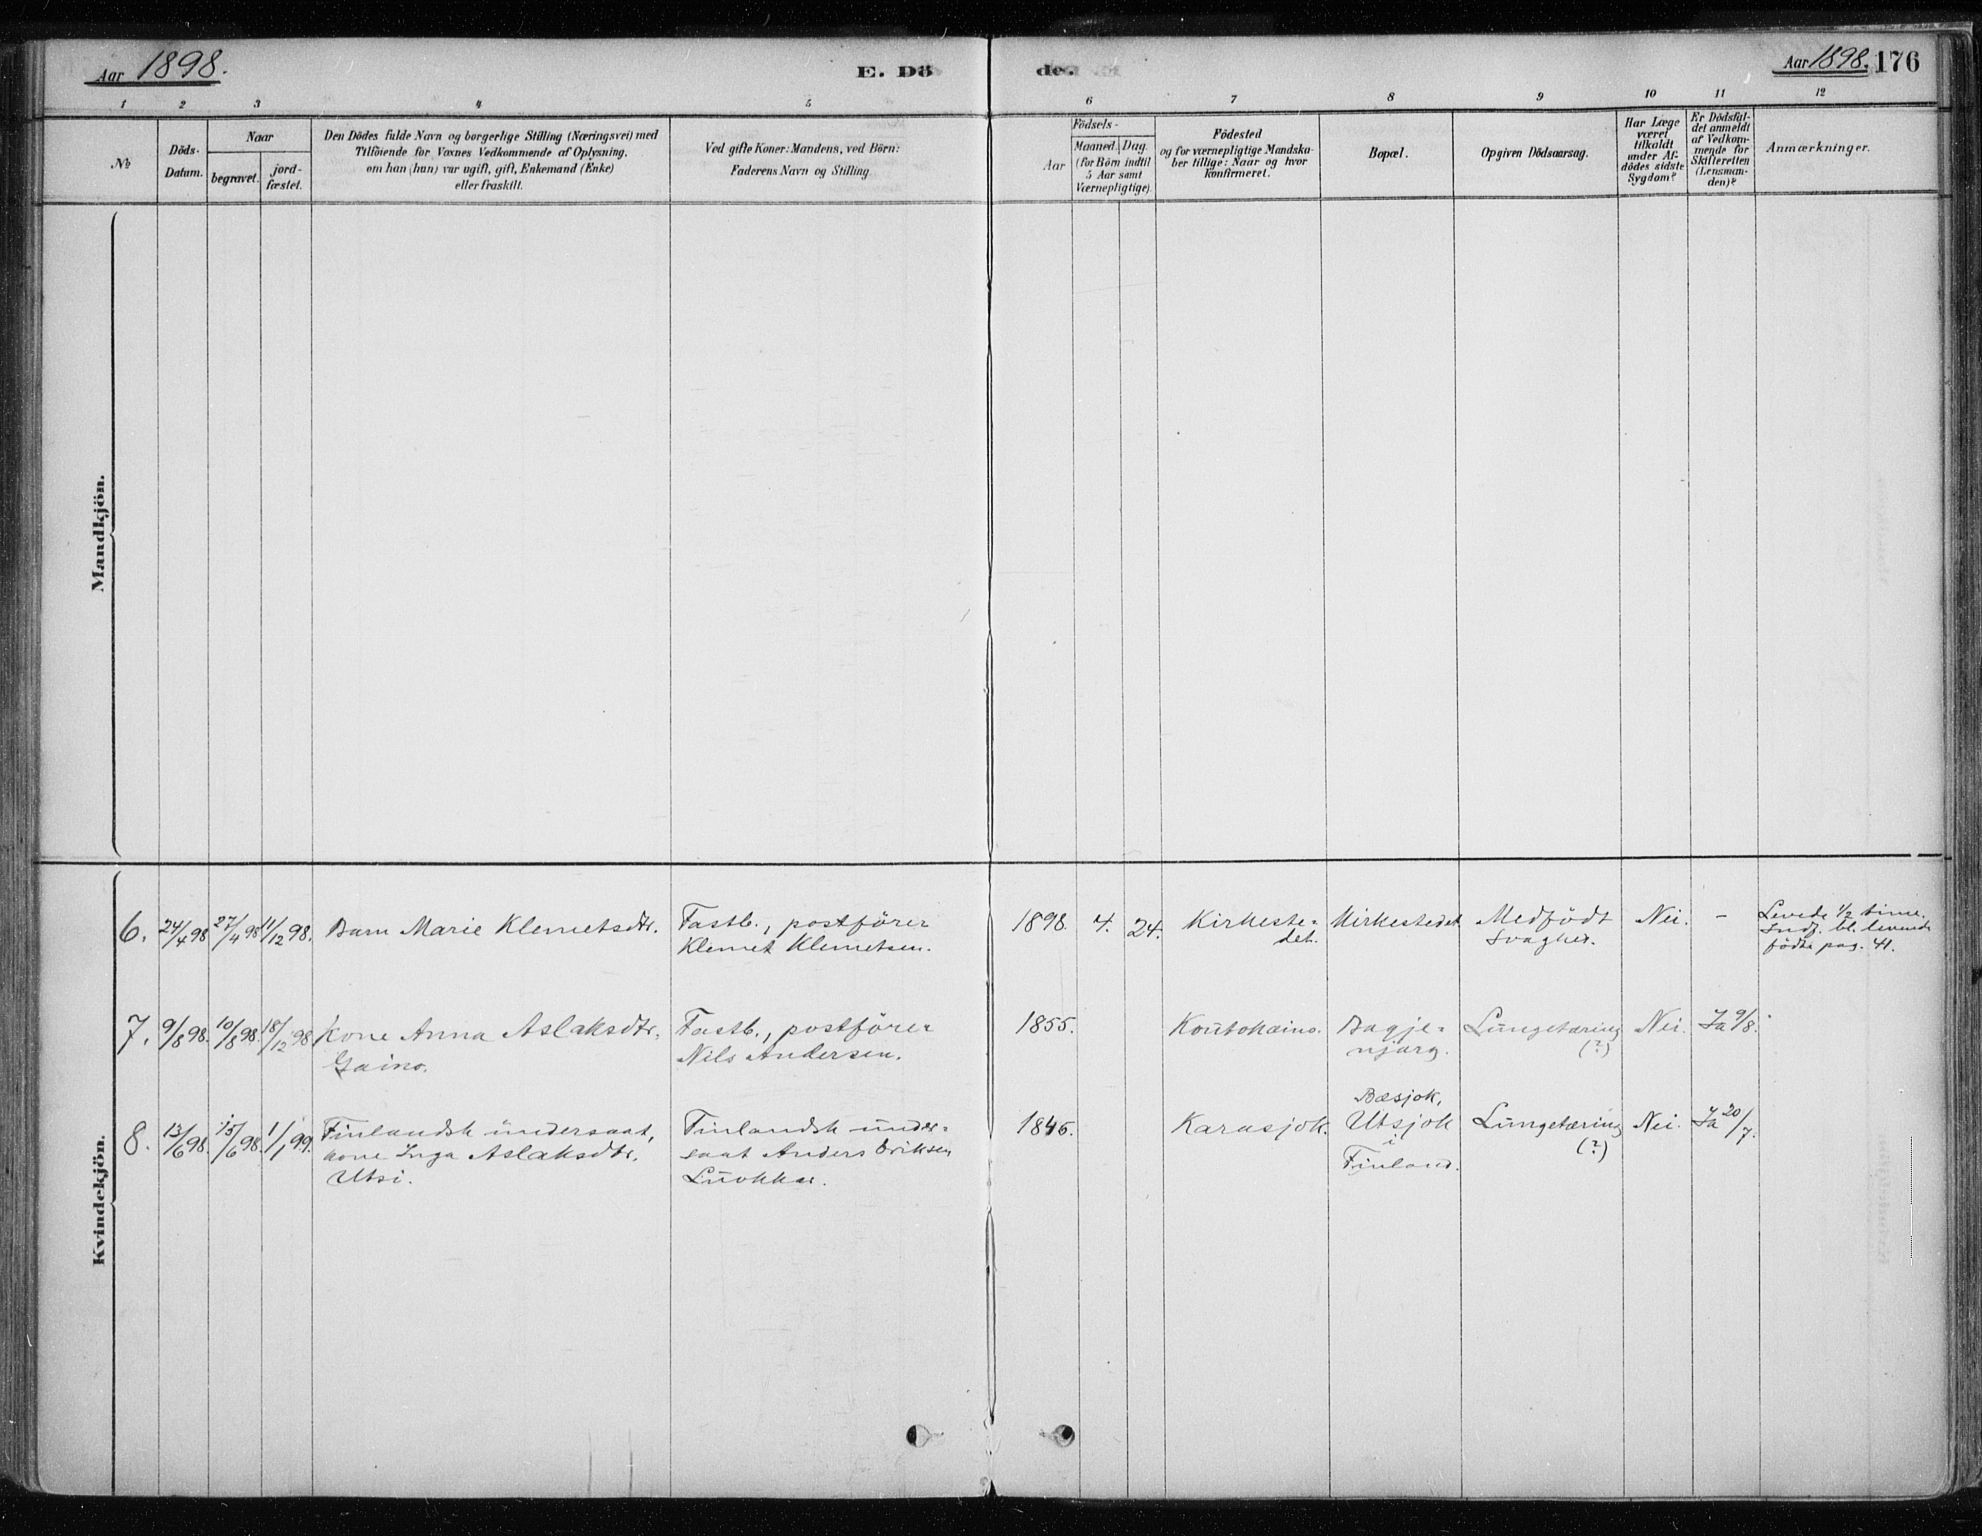 Aar 1898.
E. Dö
de.
Aar 1898. 176
1 2 3 4 5 6 7 8 9 10 11 12
№
Döds-
Datum.
Naar
begravet.
jord-
fæstet.
Den Dödes fulde Navn og borgerlige Stilling (Næringsvei) med
Tilföiende for Voxnes Vedkommende af Oplysning,
om han (hun) var ugift, gift, Enkemand (Enke)
eller fraskilt.
Ved gifte Koner: Mandens, ved Börn:
Faderens Navn og Stilling
Födsels-
Aar
Maaned. Dag.
(for Börn indtil
5 Aar samt
Værnepligtige).
Födested
og for værnepligtige Mandska-
ber tillige: Naar og hvor
konfirmeret.
Bopæl.
Opgiven Dödsaarsag.
Har Læge
været
tilkaldt
under Af-
dödes sidste
Sygdom?
Er Dödsfal-
det anmeldt
af Vedkom-
mende for
Skifteretten
(Lensman-
den)?
Anmærkninger.
Mandkjön.
Kvindekjön.
6. 24/4 98 27/4 98 11/12 98. Barn Marie Klemetsdtr.
Fastb., postförer
Klemet Klemetsen.
1898. 4. 24.
Kirkeste-
det.
Kirkestedet
Medfödt
svaghed.
Nei. –
Levede 1/2 time.
Indf. bl. levende
födte pag. 41.
7. 9/8 98. 10/8 98. 18/12 98 Kone Anna Aslaksdtr.
Gaino.
Fastb., postförer
Nils Andersen.
1855.
Koutokaino.
Bagje-
njarg.
Lungetæring
(?)
Nei. Ja 9/8.
8. 13/6 98. 15/6 98. 1/1 99. Finlandsk undersaat,
kone Inga Aslaksdtr.
Utsi.
Finlandsk under-
saat Anders Eriksen
1845.
Karasjok.
Bæsjok,
Utsjok
i
Finland.
Lungetæring
(?)
Nei. Ja 20/7.